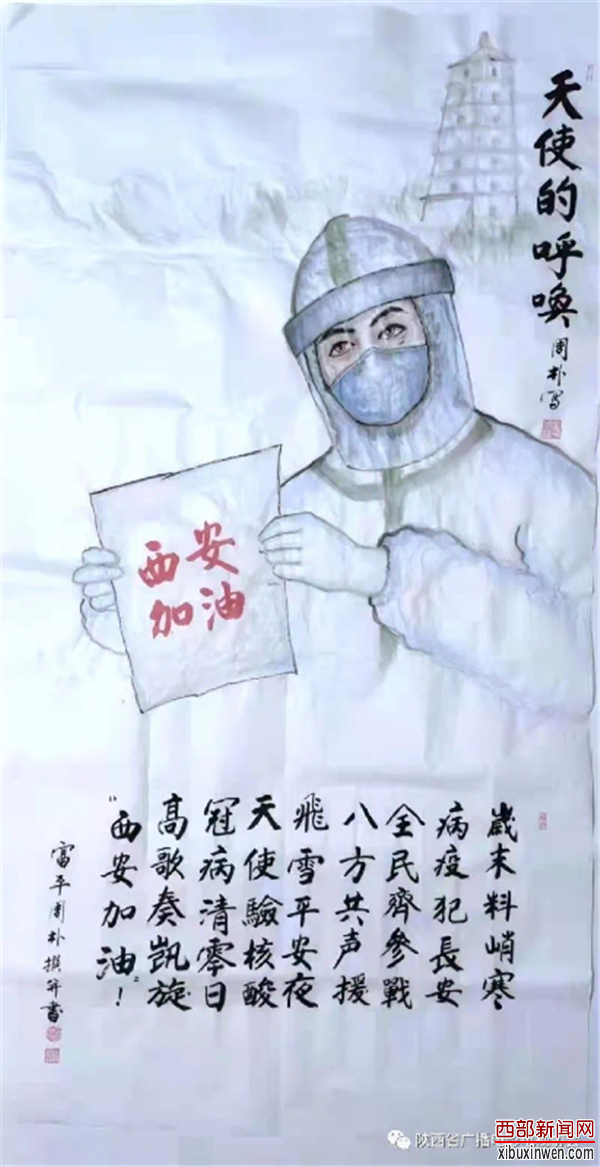 天使的呼唤
周朴写
西安
加油
歲末料峭寒
病疫犯長安
全民齊參戰
八方共声援
飛雪平安夜
天使驗核酸
冠病清零日
高歌奏凯旋
“西安加油”！
富平周朴撰并書
陕西省广播电
西部新闻网
xibuxinwen.com